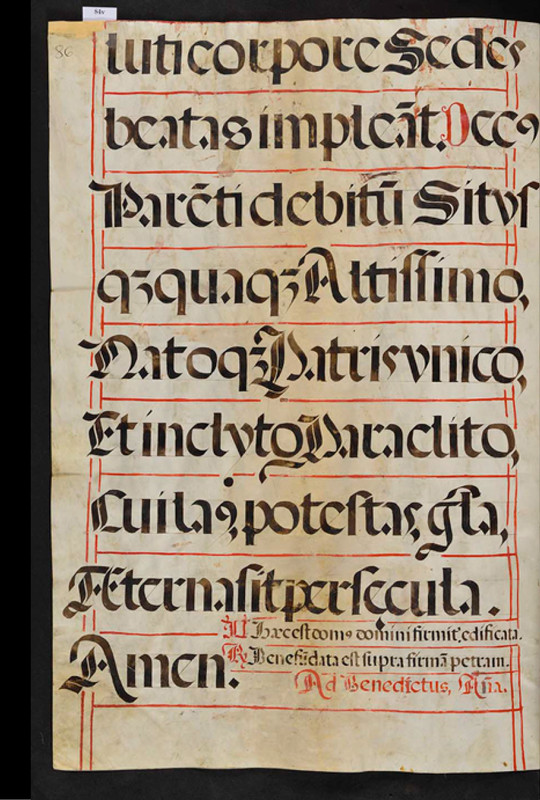 84v
86
luti corpore Sedes
beatas impleāt. Decꝯ
Parēti debitū Sitvſ
qꝫ quaqꝫ Altiſſimo,
Natoqꝫ Patris vnico,
Et inclyto Paraclito,
Cui laꝯ, poteſtas, gl̄a,
Æterna ſit per ſęcula.
℣ Hæc est domꝯ domini firmit̾, edificata.
Amen. ℟ Bene fūdata est ſupra firmā petram.
Ad Benedictus, Aña.